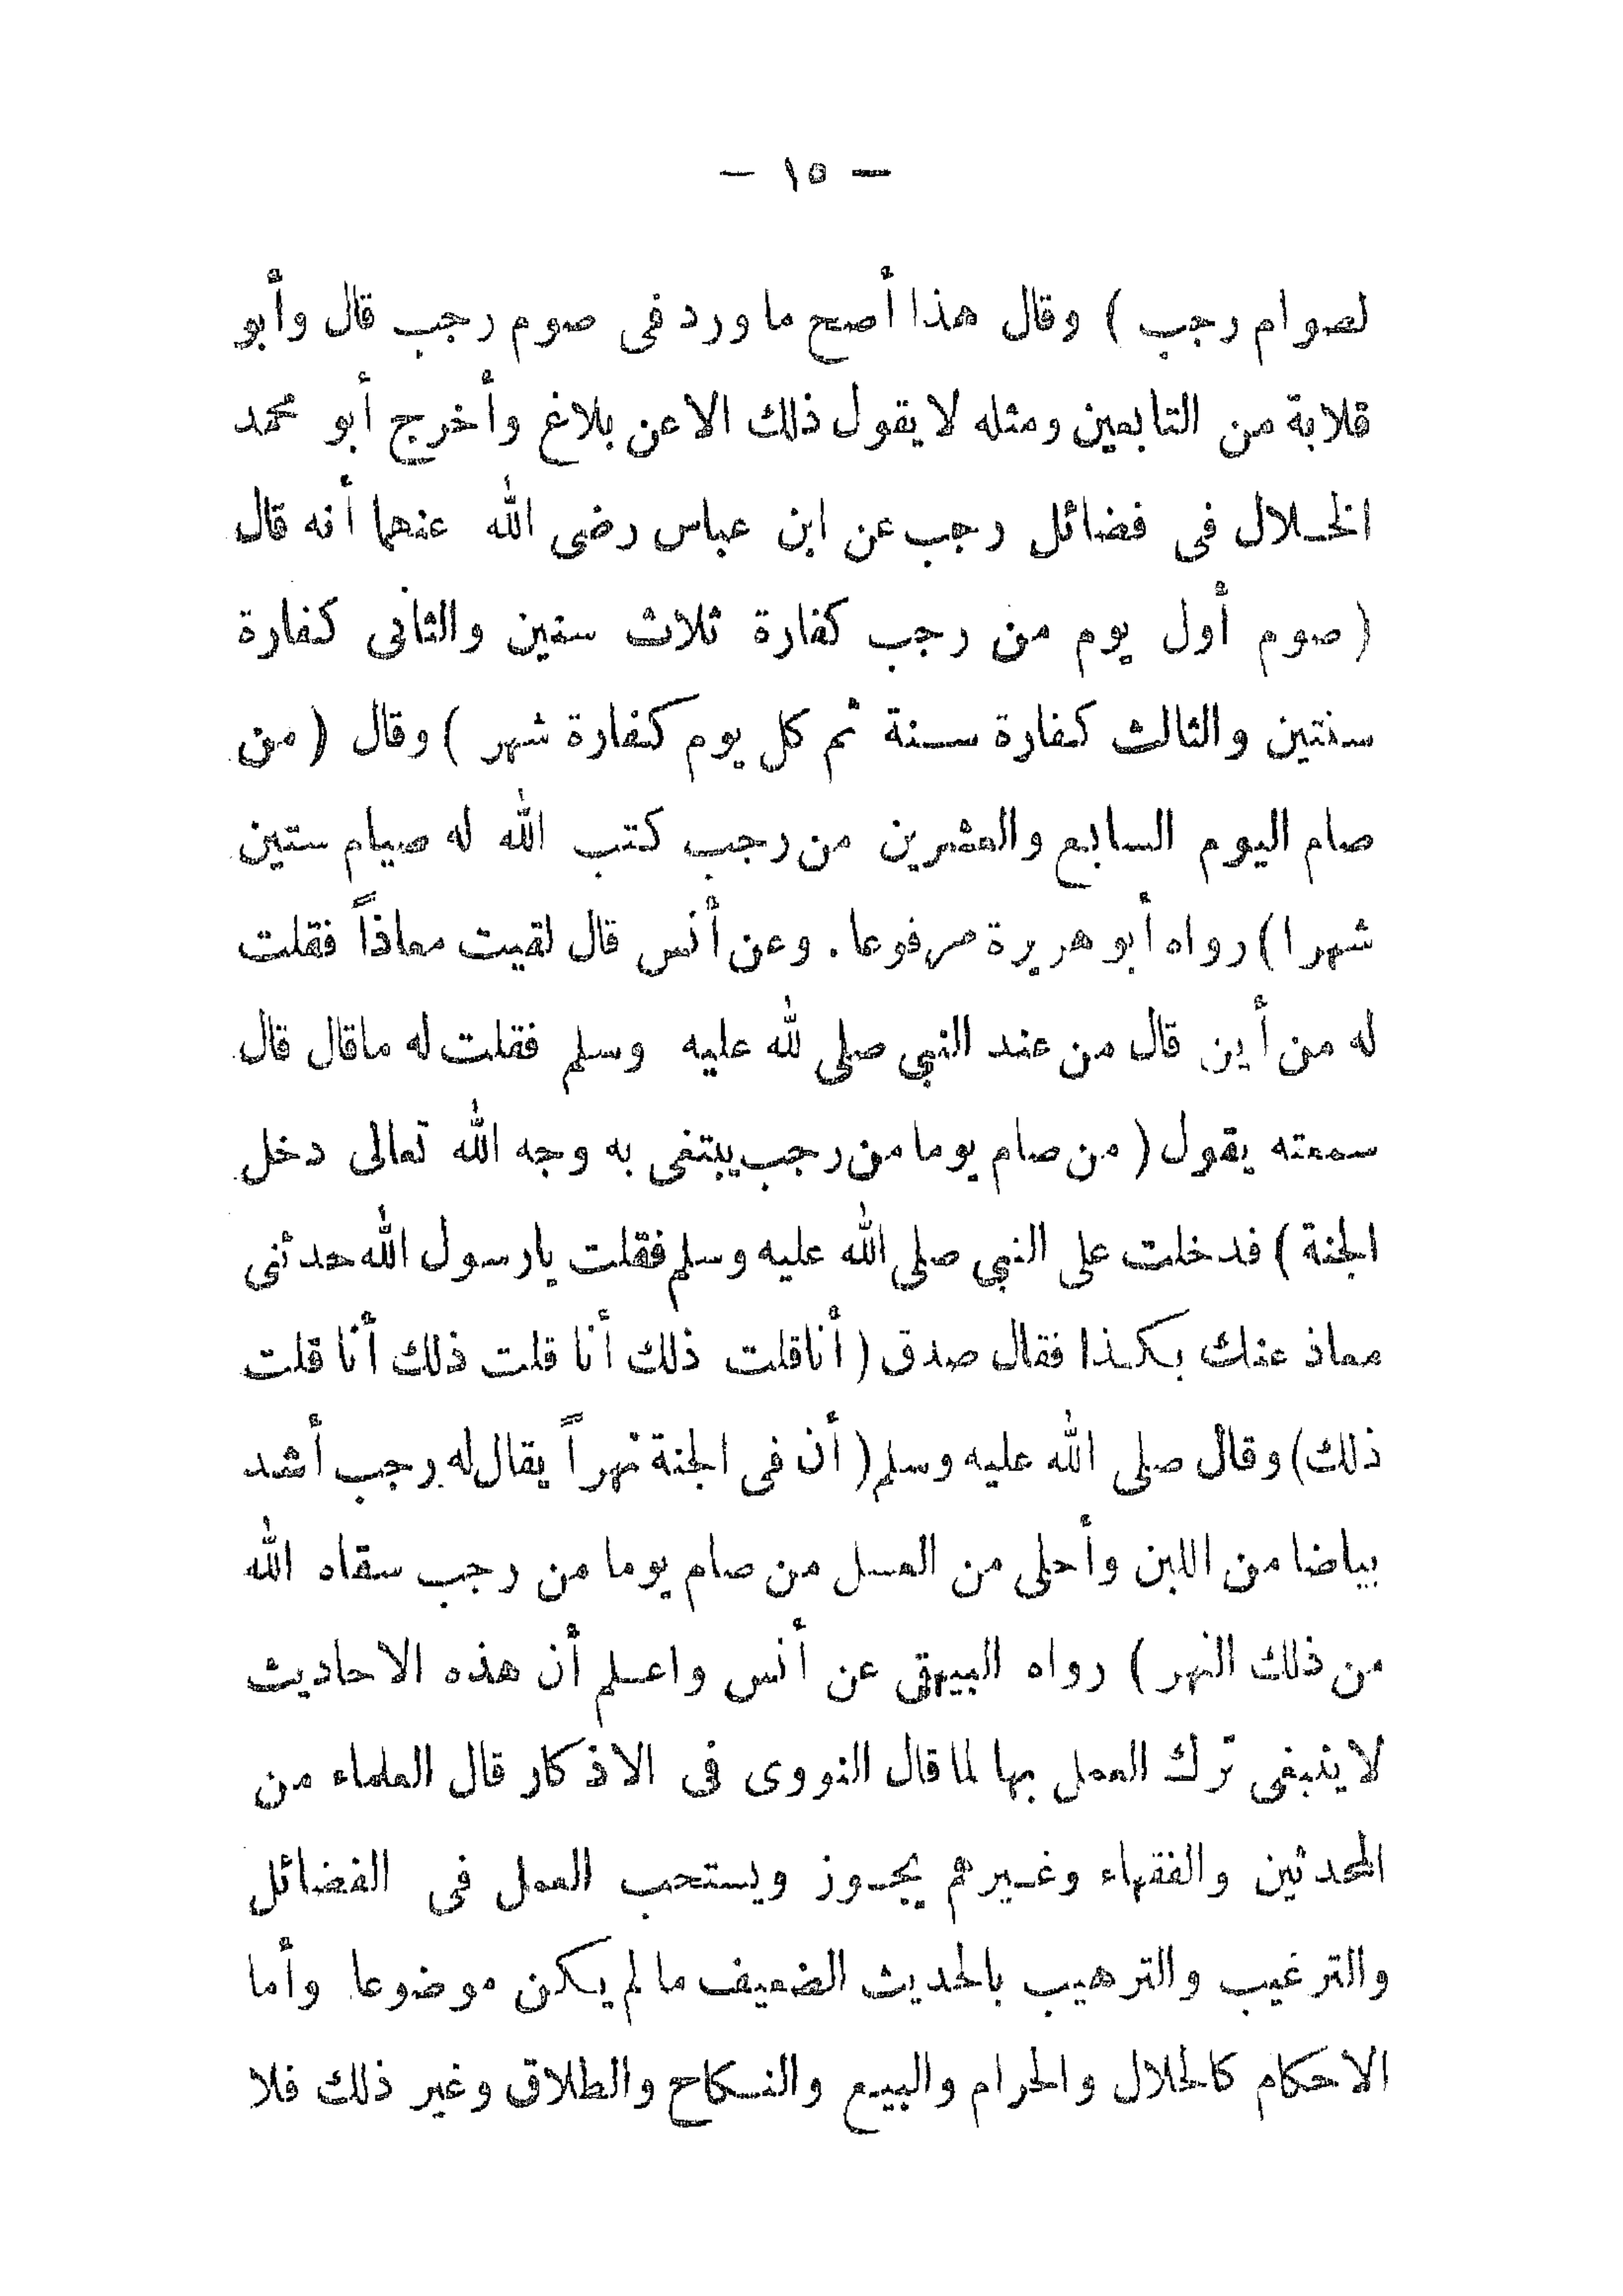 — ١٥ —
لصوام رجب ) وقال هذا أصح ما ورد فى صوم رجب قال وأبو
قلابة من التابعين ومثله لا يقول ذلك الا عن بلاغ وأخرج أبو محمد
الخلال فى فضائل رجب عن ابن عباس رضى الله عنهما أنه قال
( صوم أول يوم من رجب كفارة ثلاث سنين والثانى كفارة
سنتين والثالث كفارة سنة ثم كل يوم كفارة شهر ) وقال ( من
صام اليوم السابع والعشرين من رجب كتب الله له صيام ستين
شهرا ) رواه أبو هريرة مرفوعا . وعن أنس قال لقيت معاذاً فقلت
له من أين قال من عند النبي صلى لله عليه وسلم فقلت له ماقال قال
سمعته يقول ( من صام يوما من رجب يبتغى به وجه الله تعالى دخل
الجنة ) فدخلت على النبي صلى الله عليه وسلم فقلت يارسول الله حدثنى
معاذ عنك بكذا فقال صدق ( أناقلت ذلك أنا قلت ذلك أنا قلت
ذلك ) وقال صلى الله عليه وسلم ( أن فى الجنة نهراً يقال له رجب أشد
بياضا من اللبن وأحلى من العسل من صام يوما من رجب سقاه الله
من ذلك النهر ) رواه البيهقى عن أنس واعلم أن هذه الاحاديث
لا ينبغى ترك العمل بها لما قال النووى فى الاذكار قال العلماء من
المحدثين والفقهاء وغيرهم يجوز ويستحب العمل فى الفضائل
والترغيب والترهيب بالحديث الضعيف ما لم يكن موضوعا وأما
الاحكام كالحلال والحرام والبيع والنكاح والطلاق وغير ذلك فلا